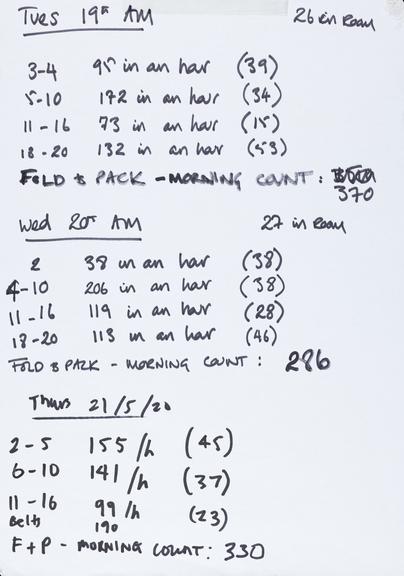 Tues 19th AM 26 in Room
3-4 95 in an hour (39)
5-10 172 in an hour (34)
11-16 73 in an hour (15)
18-20 132 in an hour (53)
FOLD & PACK - MORNING COUNT :
370
Wed 20th AM 27 in Room
2 38 in an hour (38)
4-10 206 in an hour (38)
11-16 119 in an hour (28)
18-20 113 in an hour (46)
FOLD & PACK - MORNING COUNT : 286
Thurs 21/5/20
2-5 155/h (45)
6-10 141/h (37)
11-16 99/h (23)
Belts 190
F+P - MORNING COUNT: 330